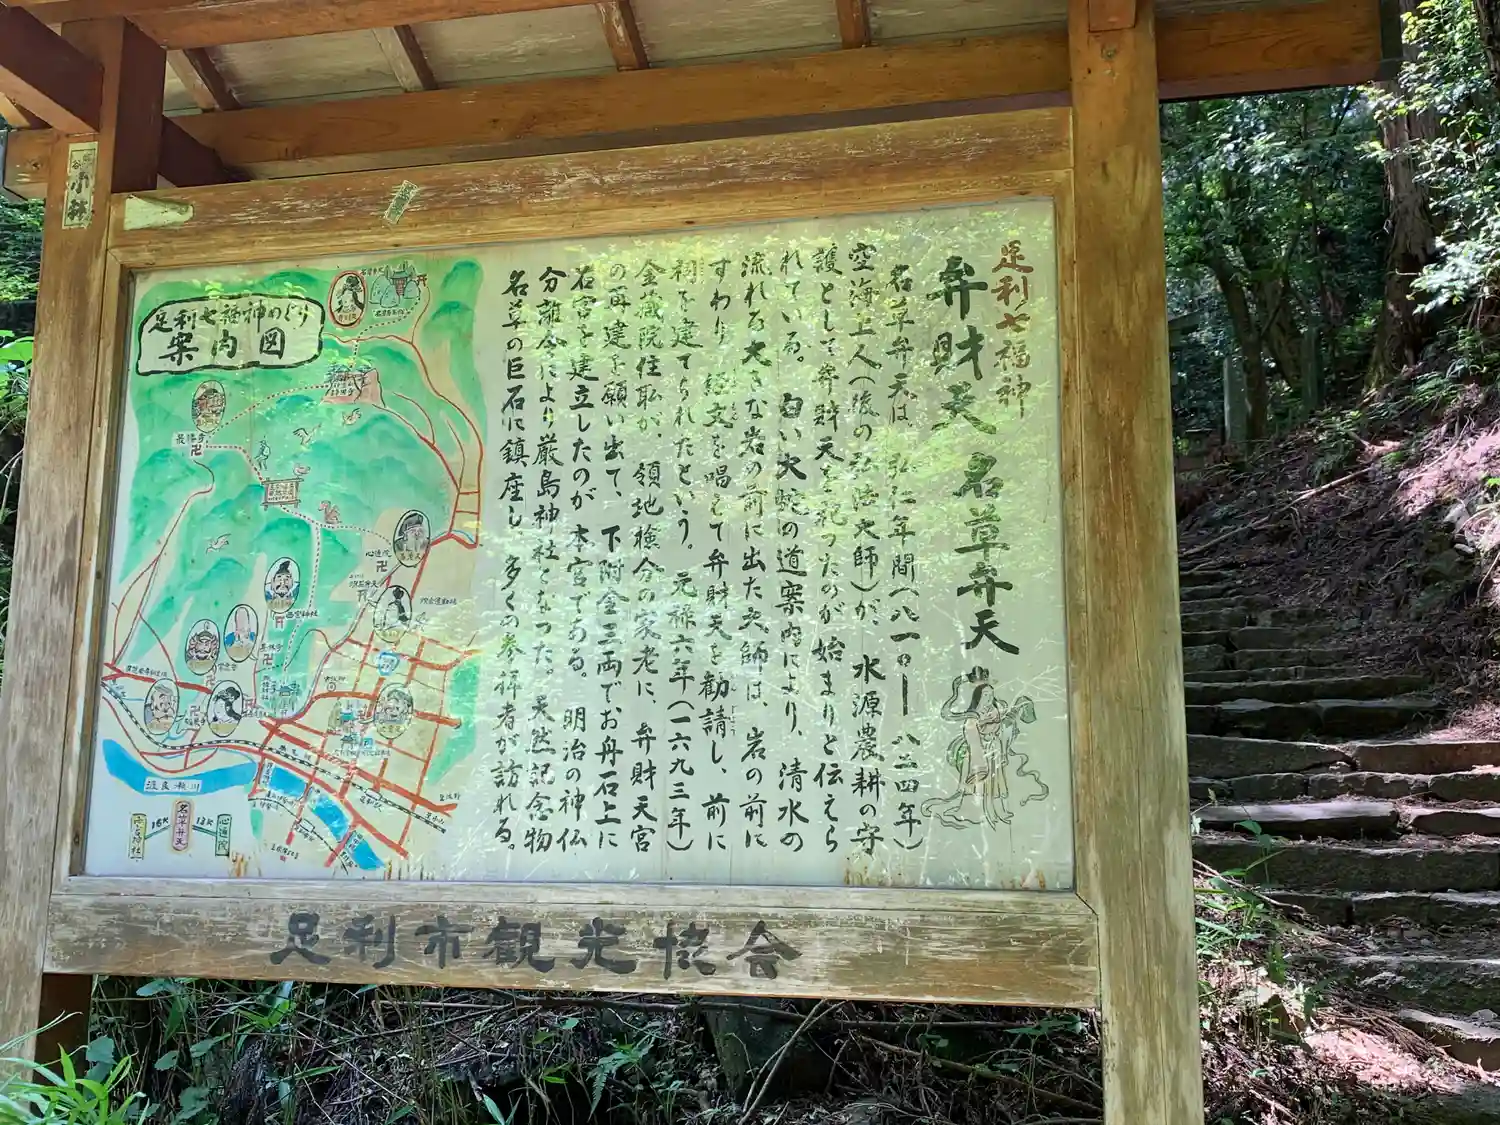 足利七福神
弁財天 名草弁天
名草弁天は、弘仁年間(八一〇ー八二四年)
空海上人(後の弘法大師)が、水源農耕の守
護として弁財天を祀ったのが始まりと伝えら
れている。白い大蛇の道案内により、清水の
流れる大きな岩の前に出た大師は、岩の前に
すわり、経文を唱えて弁財天を勧請し、前に
祠を建てられたという。元禄六年(一六九三年)
金蔵院住職が、領地検分の家老に、弁財天宮
の再建を願い出て、下附金三両でお舟石上に
石宮を建立したのが本宮である。明治の神仏
分離令により厳島神社となった。天然記念物
名草の巨石に鎮座し、多くの参拝者が訪れる。
足利七福神めぐり
案内図
最勝寺
心通院
西宮神社
長林寺
常念寺
渡良瀬川
名草弁天
心通院
足利市観光協会
小林